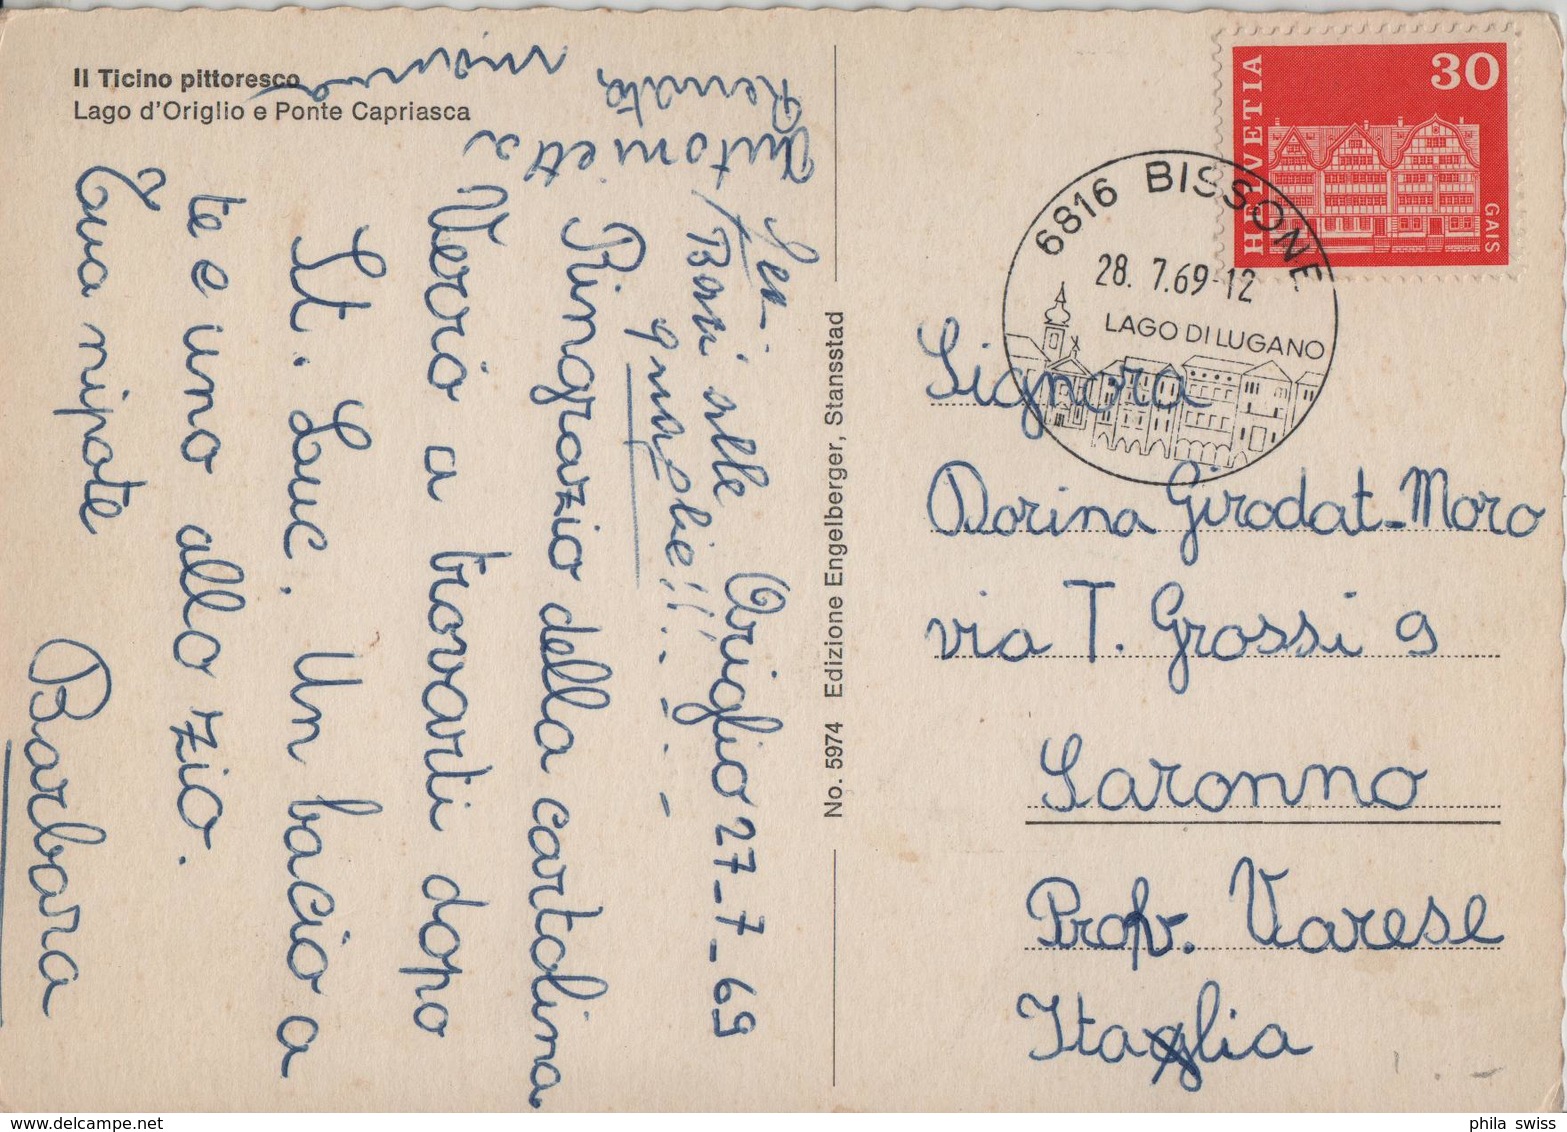 Il Ticino pittoresco
Lago d'Origlio e Ponte Capriasca
Origlio 27-7-69
Ringrazio della cartolina
Verrò a trovarti dopo
il. Luc. Un bacio a
te e uno allo zio.
Tua nipote
Barbara
Baci alle
quaglie!!
Antonietta
Renata
No. 5974 Edizione Engelberger, Stansstad
HELVETIA
30
GAIS
6816 BISSONE
28. 7.69-12
LAGO DI LUGANO
Signora
Dorina Girodat-Moro
via T. Grossi 9
Saronno
Prov. Varese
Italia
phila swiss